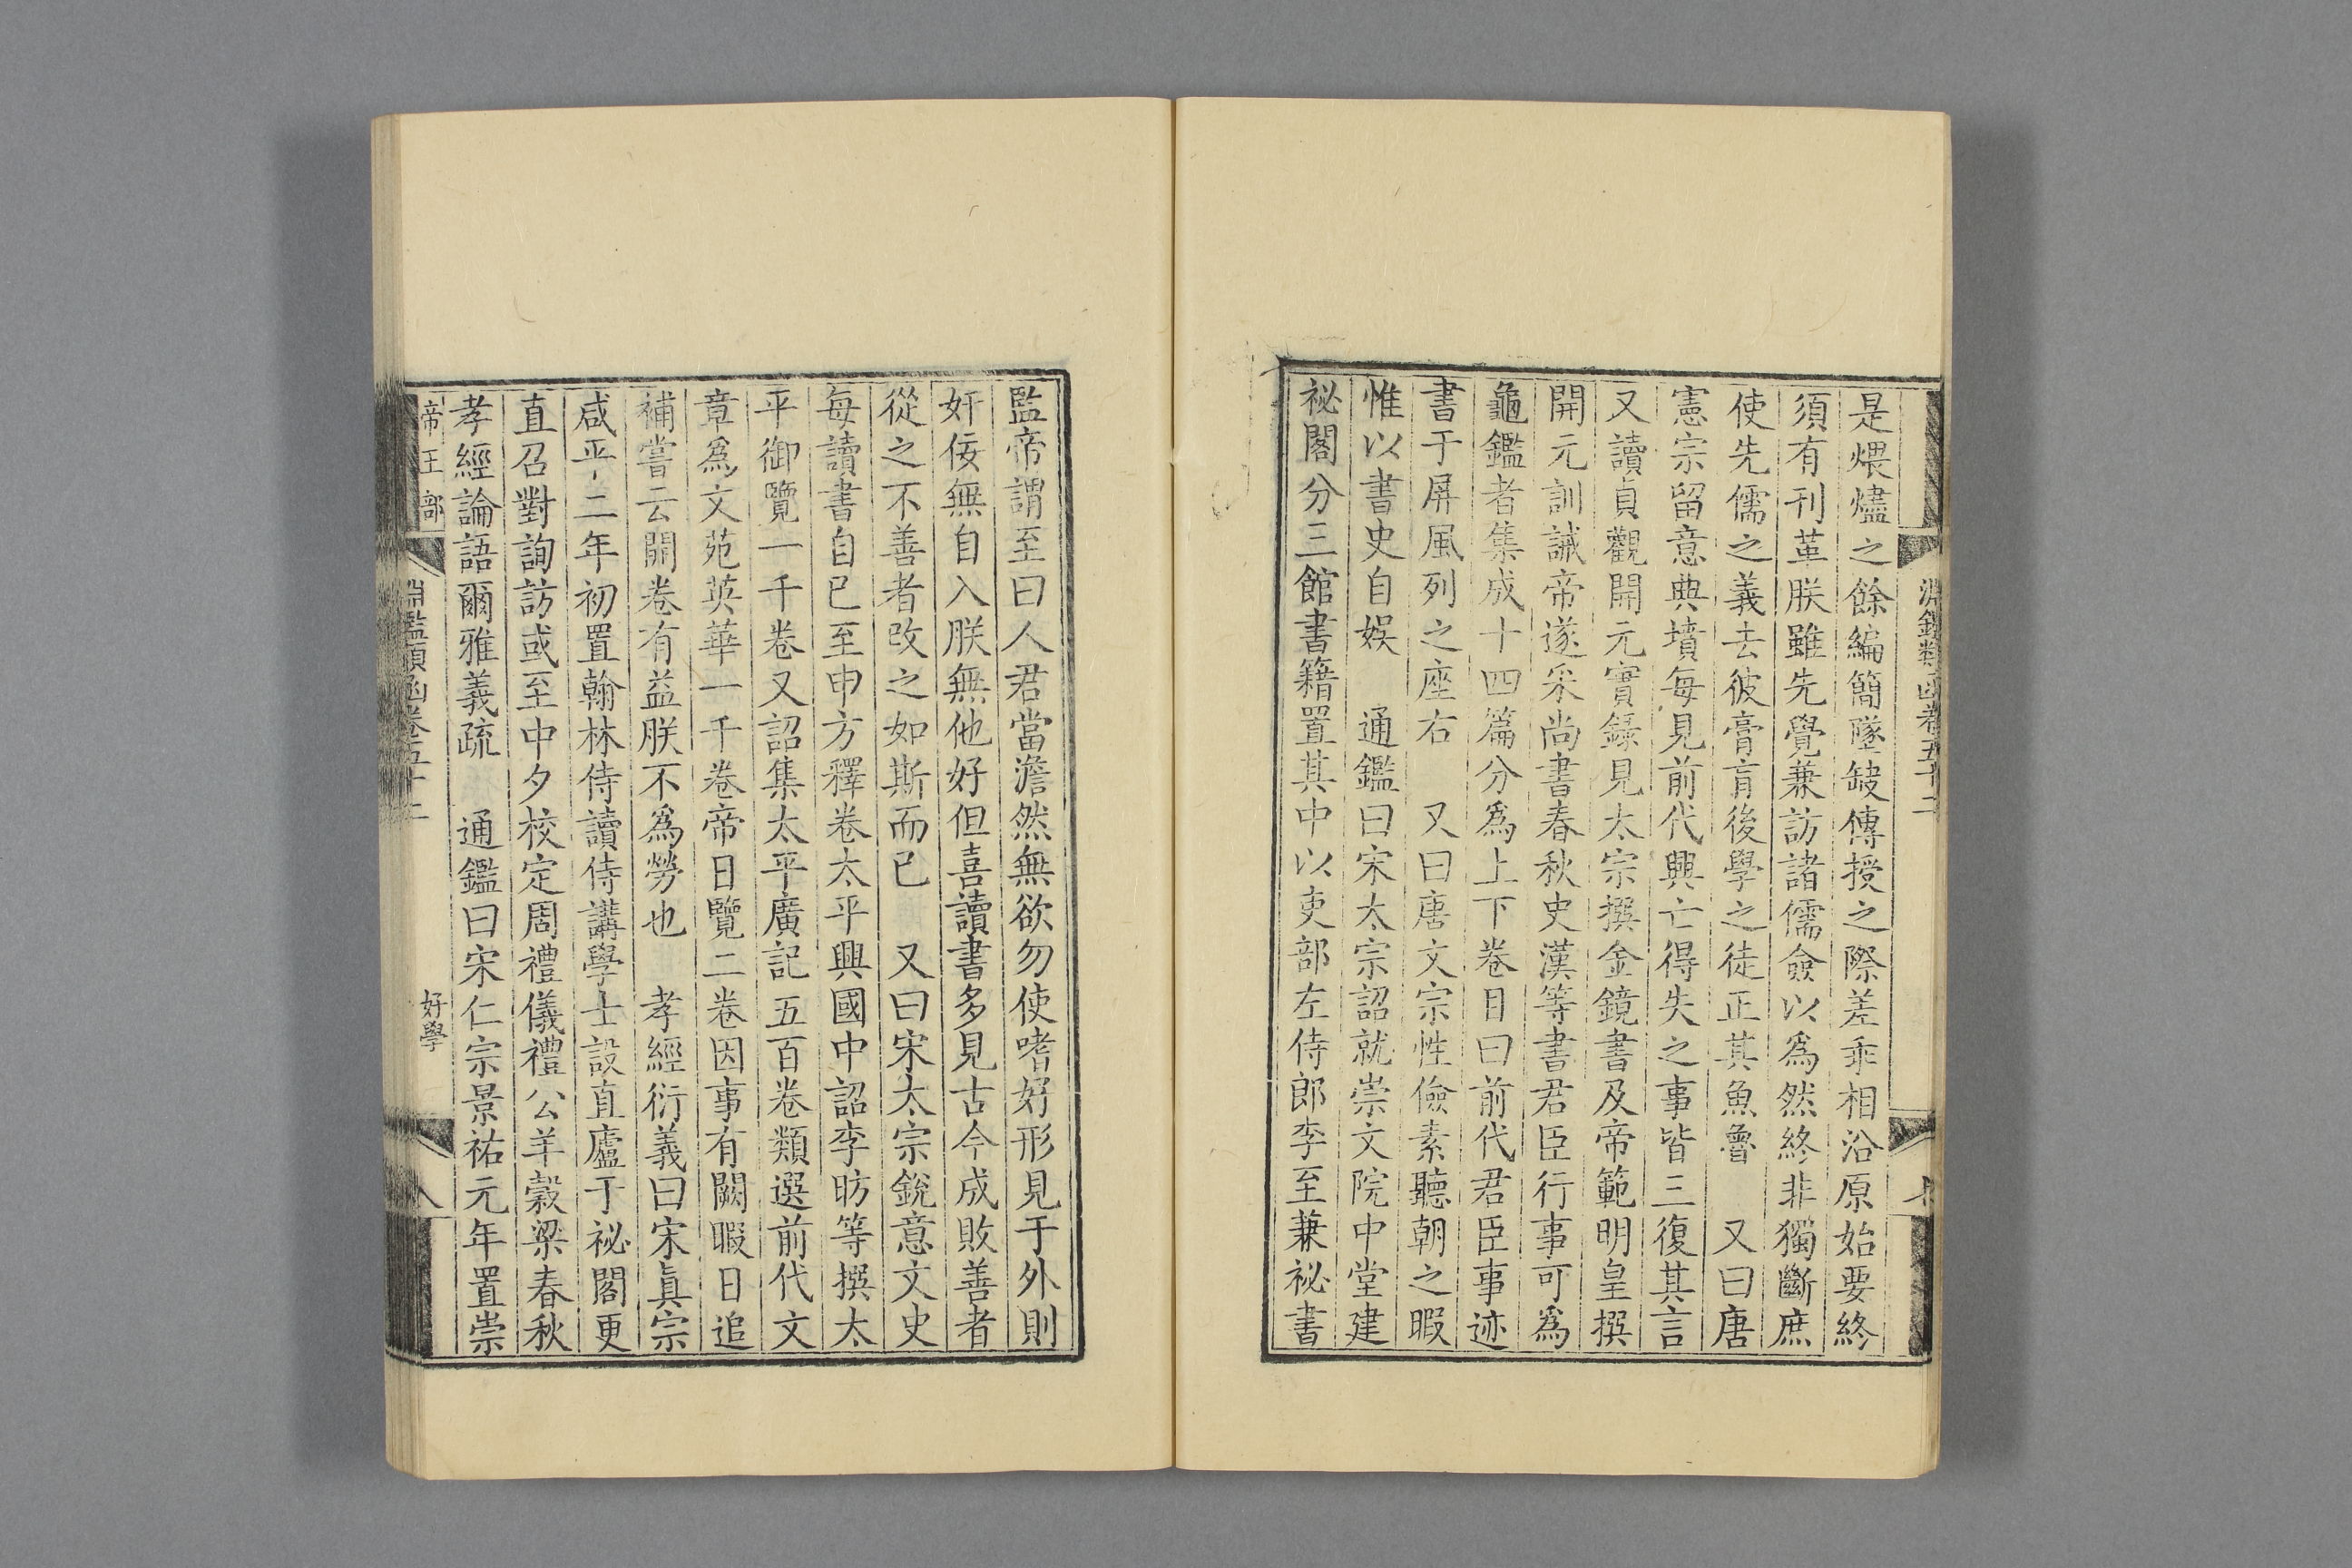 淵鑑類函卷五十二
是煨燼之餘編簡墜缺傳授之際差乖相沿原始要終
須有刊革朕雖先覺兼訪諸儒僉以爲然終非獨斷庶
使先儒之義去彼膏肓後學之徒正其魚魯　又曰唐
憲宗留意典墳每見前代興亡得失之事皆三復其言
又讀貞觀開元實錄見太宗撰金鏡書及帝範明皇撰
開元訓誡帝遂采尚書春秋史漢等書君臣行事可爲
龜鑑者集成十四篇分爲上下卷目曰前代君臣事迹
書于屏風列之座右　又曰唐文宗性儉素聽朝之暇
惟以書史自娛　通鑑曰宋太宗詔就崇文院中堂建
祕閣分三館書籍置其中以吏部左侍郎李至兼祕書
監帝謂至曰人君當澹然無欲勿使嗜好形見于外則
奸佞無自入朕無他好但喜讀書多見古今成敗善者
從之不善者改之如斯而已　又曰宋太宗銳意文史
每讀書自巳至申方釋卷太平興國中詔李昉等撰太
平御覽一千卷又詔集太平廣記五百卷類選前代文
章爲文苑英華一千卷帝日覽二卷因事有闕暇日追
補嘗云開卷有益朕不爲勞也　孝經衍義曰宋眞宗
咸平二年初置翰林侍讀侍講學士設直廬于祕閣更
直召對詢訪或至中夕校定周禮儀禮公羊穀梁春秋
孝經論語爾雅義疏　通鑑曰宋仁宗景祐元年置崇
帝王部　好學
淵鑑類函卷五十二　八